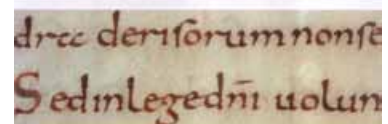 dra deriſorumnonſe
Sedinlegedn̄i uolun